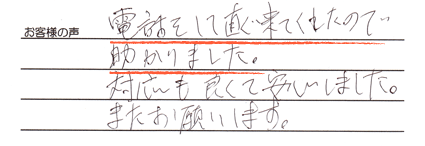 お客様の声
電話をして直ぐ来てくれたので
助かりました。
対応も良くて安心しました。
またお願いします。